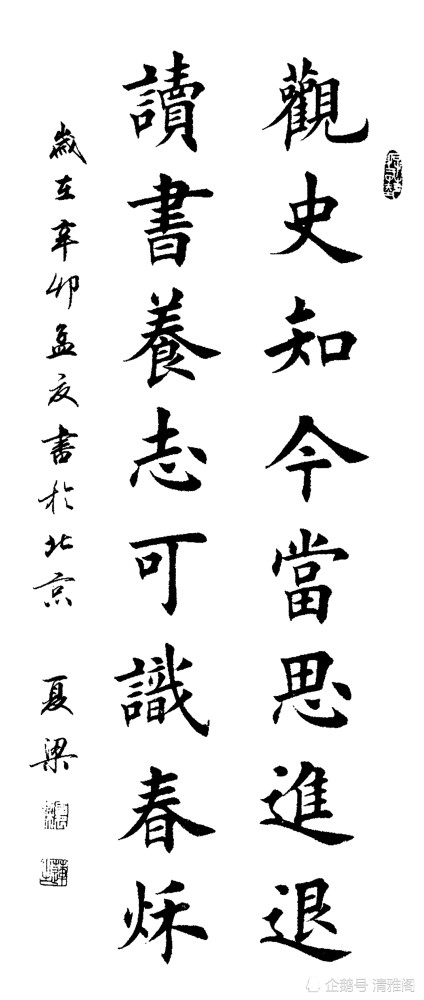 觀史知今當思進退
讀書養志可識春秌
歲在辛卯孟夏書於北京 夏梁
企鹅号 清雅阁